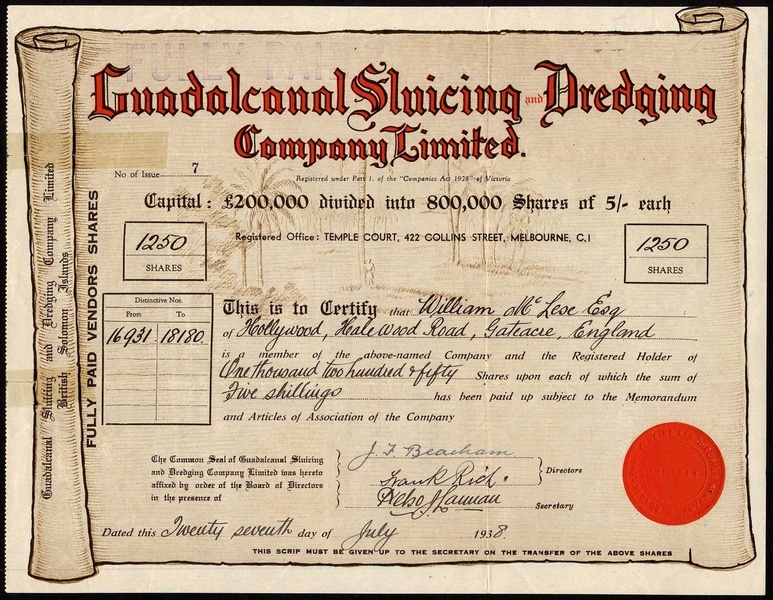 FULLY PAID
Guadalcanal Sluicing and Dredging
Company Limited.
No of Issue 7
Registered under Part 1. of the "Companies Act 1928" of Victoria
Capital: £200,000 divided into 800,000 Shares of 5/- each
1250
SHARES
Registered Office: TEMPLE COURT, 422 COLLINS STREET, MELBOURNE, C.1
1250
SHARES
Guadalcanal Sluicing and Dredging Company Limited
British Solomon Islands
FULLY PAID VENDORS SHARES
Distinctive Nos.
From To
16931 18180
This is to Certify that William McLese Esq
of Hollywood, Halewood Road, Gateacre, England
is a member of the above-named Company and the Registered Holder of
One thousand two hundred & fifty Shares upon each of which the sum of
Five shillings has been paid up subject to the Memorandum
and Articles of Association of the Company
The Common Seal of Guadalcanal Sluicing
and Dredging Company Limited was hereto
affixed by order of the Board of Directors
in the presence of
J. F. Beacham
Frank Rich.
Directors
Secretary
Dated this Twenty seventh day of July 1938.
THIS SCRIP MUST BE GIVEN UP TO THE SECRETARY ON THE TRANSFER OF THE ABOVE SHARES